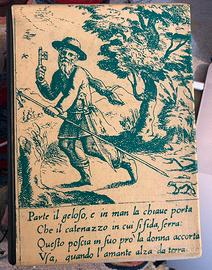 Parte il geloso, e in man la chiaue porta
Che il catenazzo in cui si fida, serra:
Questo poscia in suo prò la donna accorta
Vsa, quando l'amante alza da terra.